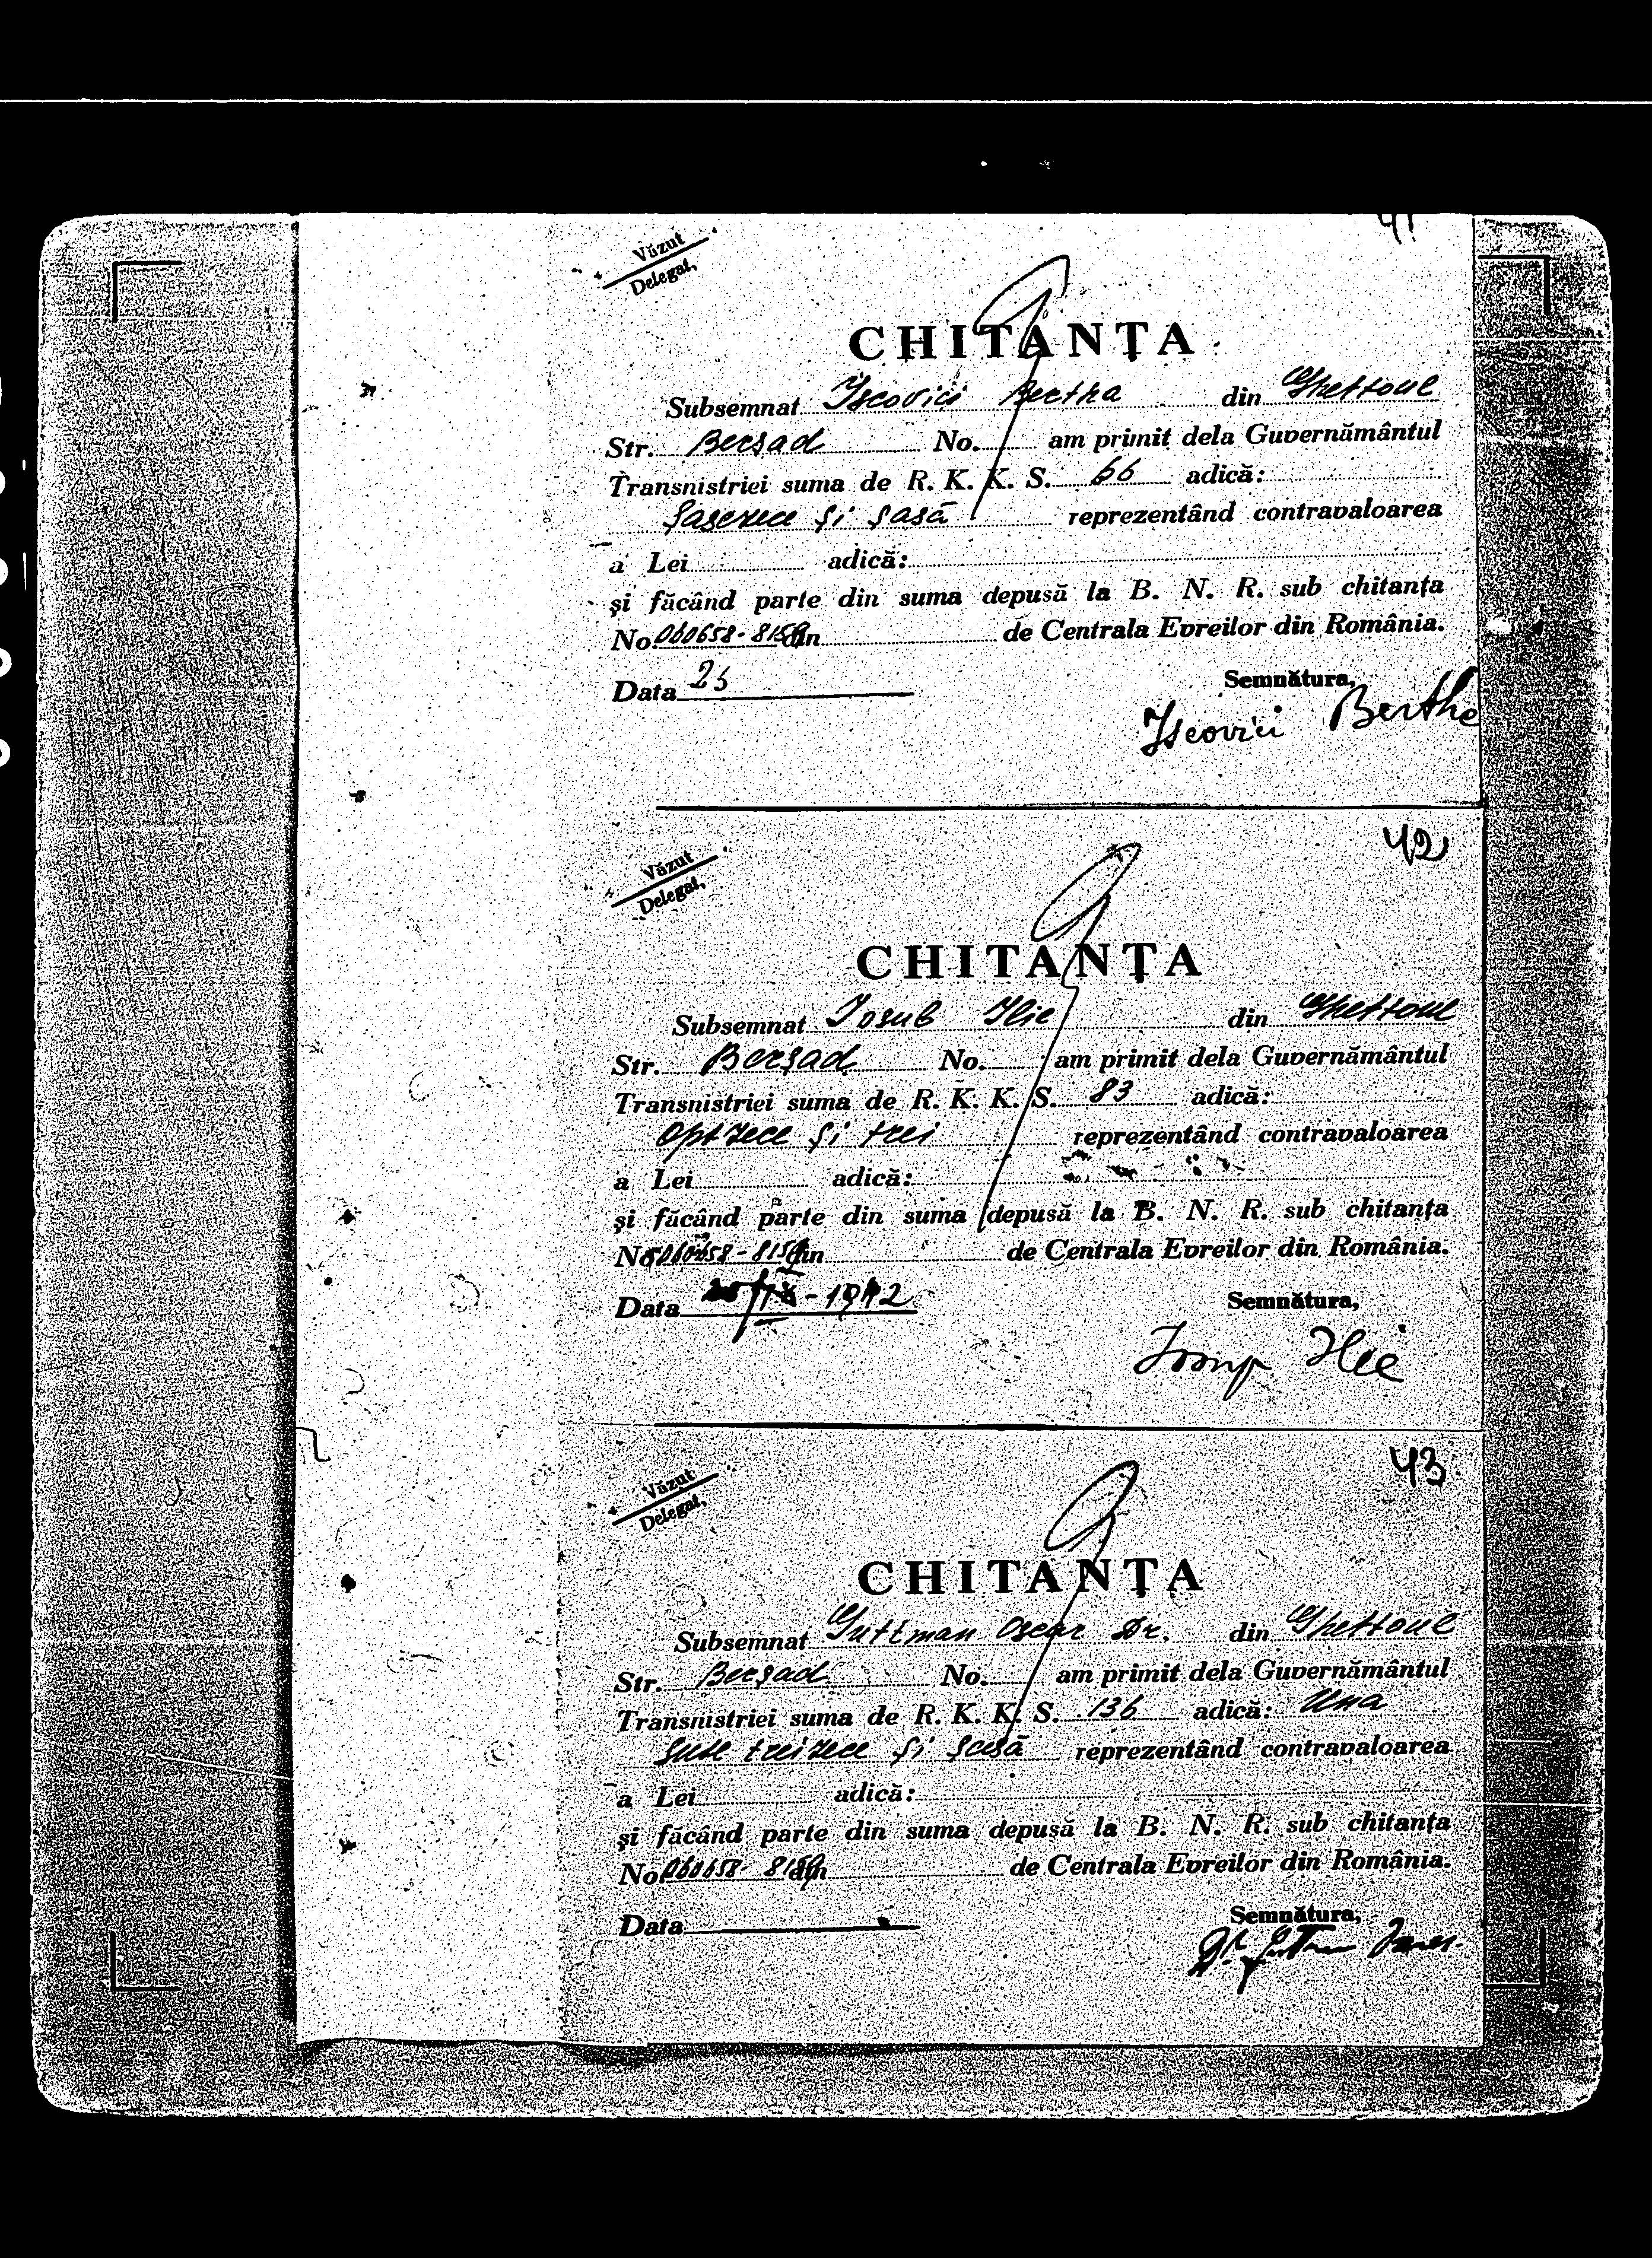 41
Văzut
Delegat,
CHITANȚA
Subsemnat Iscovici Bertha din Ghettoul
Str. Berșad No. am primit dela Guvernământul
Transnistriei suma de R. K. K. S. 66 adică:
Șasezece și șasă reprezentând contravaloarea
a Lei adică:
și făcând parte din suma depusă la B. N. R. sub chitanța
No. 060658-8159 din de Centrala Evreilor din România.
Data 25
Semnătura,
Iscovici Berthe
42
Văzut
Delegat,
CHITANȚA
Subsemnat Iosub Ilie din Ghettoul
Str. Berșad No. am primit dela Guvernământul
Transnistriei suma de R. K. K. S. 83 adică:
optzece și trei reprezentând contravaloarea
a Lei adică:
și făcând parte din suma depusă la B. N. R. sub chitanța
No. 060658-8159 din de Centrala Evreilor din România.
Data 1942
Semnătura,
Ilie
43
Văzut
Delegat,
CHITANȚA
Subsemnat Guttman Oscar Dr. din Ghettoul
Str. Berșad No. am primit dela Guvernământul
Transnistriei suma de R. K. K. S. 136 adică: Una
sute treizece și șasă reprezentând contravaloarea
a Lei adică:
și făcând parte din suma depusă la B. N. R. sub chitanța
No. 060658-8159 din de Centrala Evreilor din România.
Data
Semnătura,
Dr.